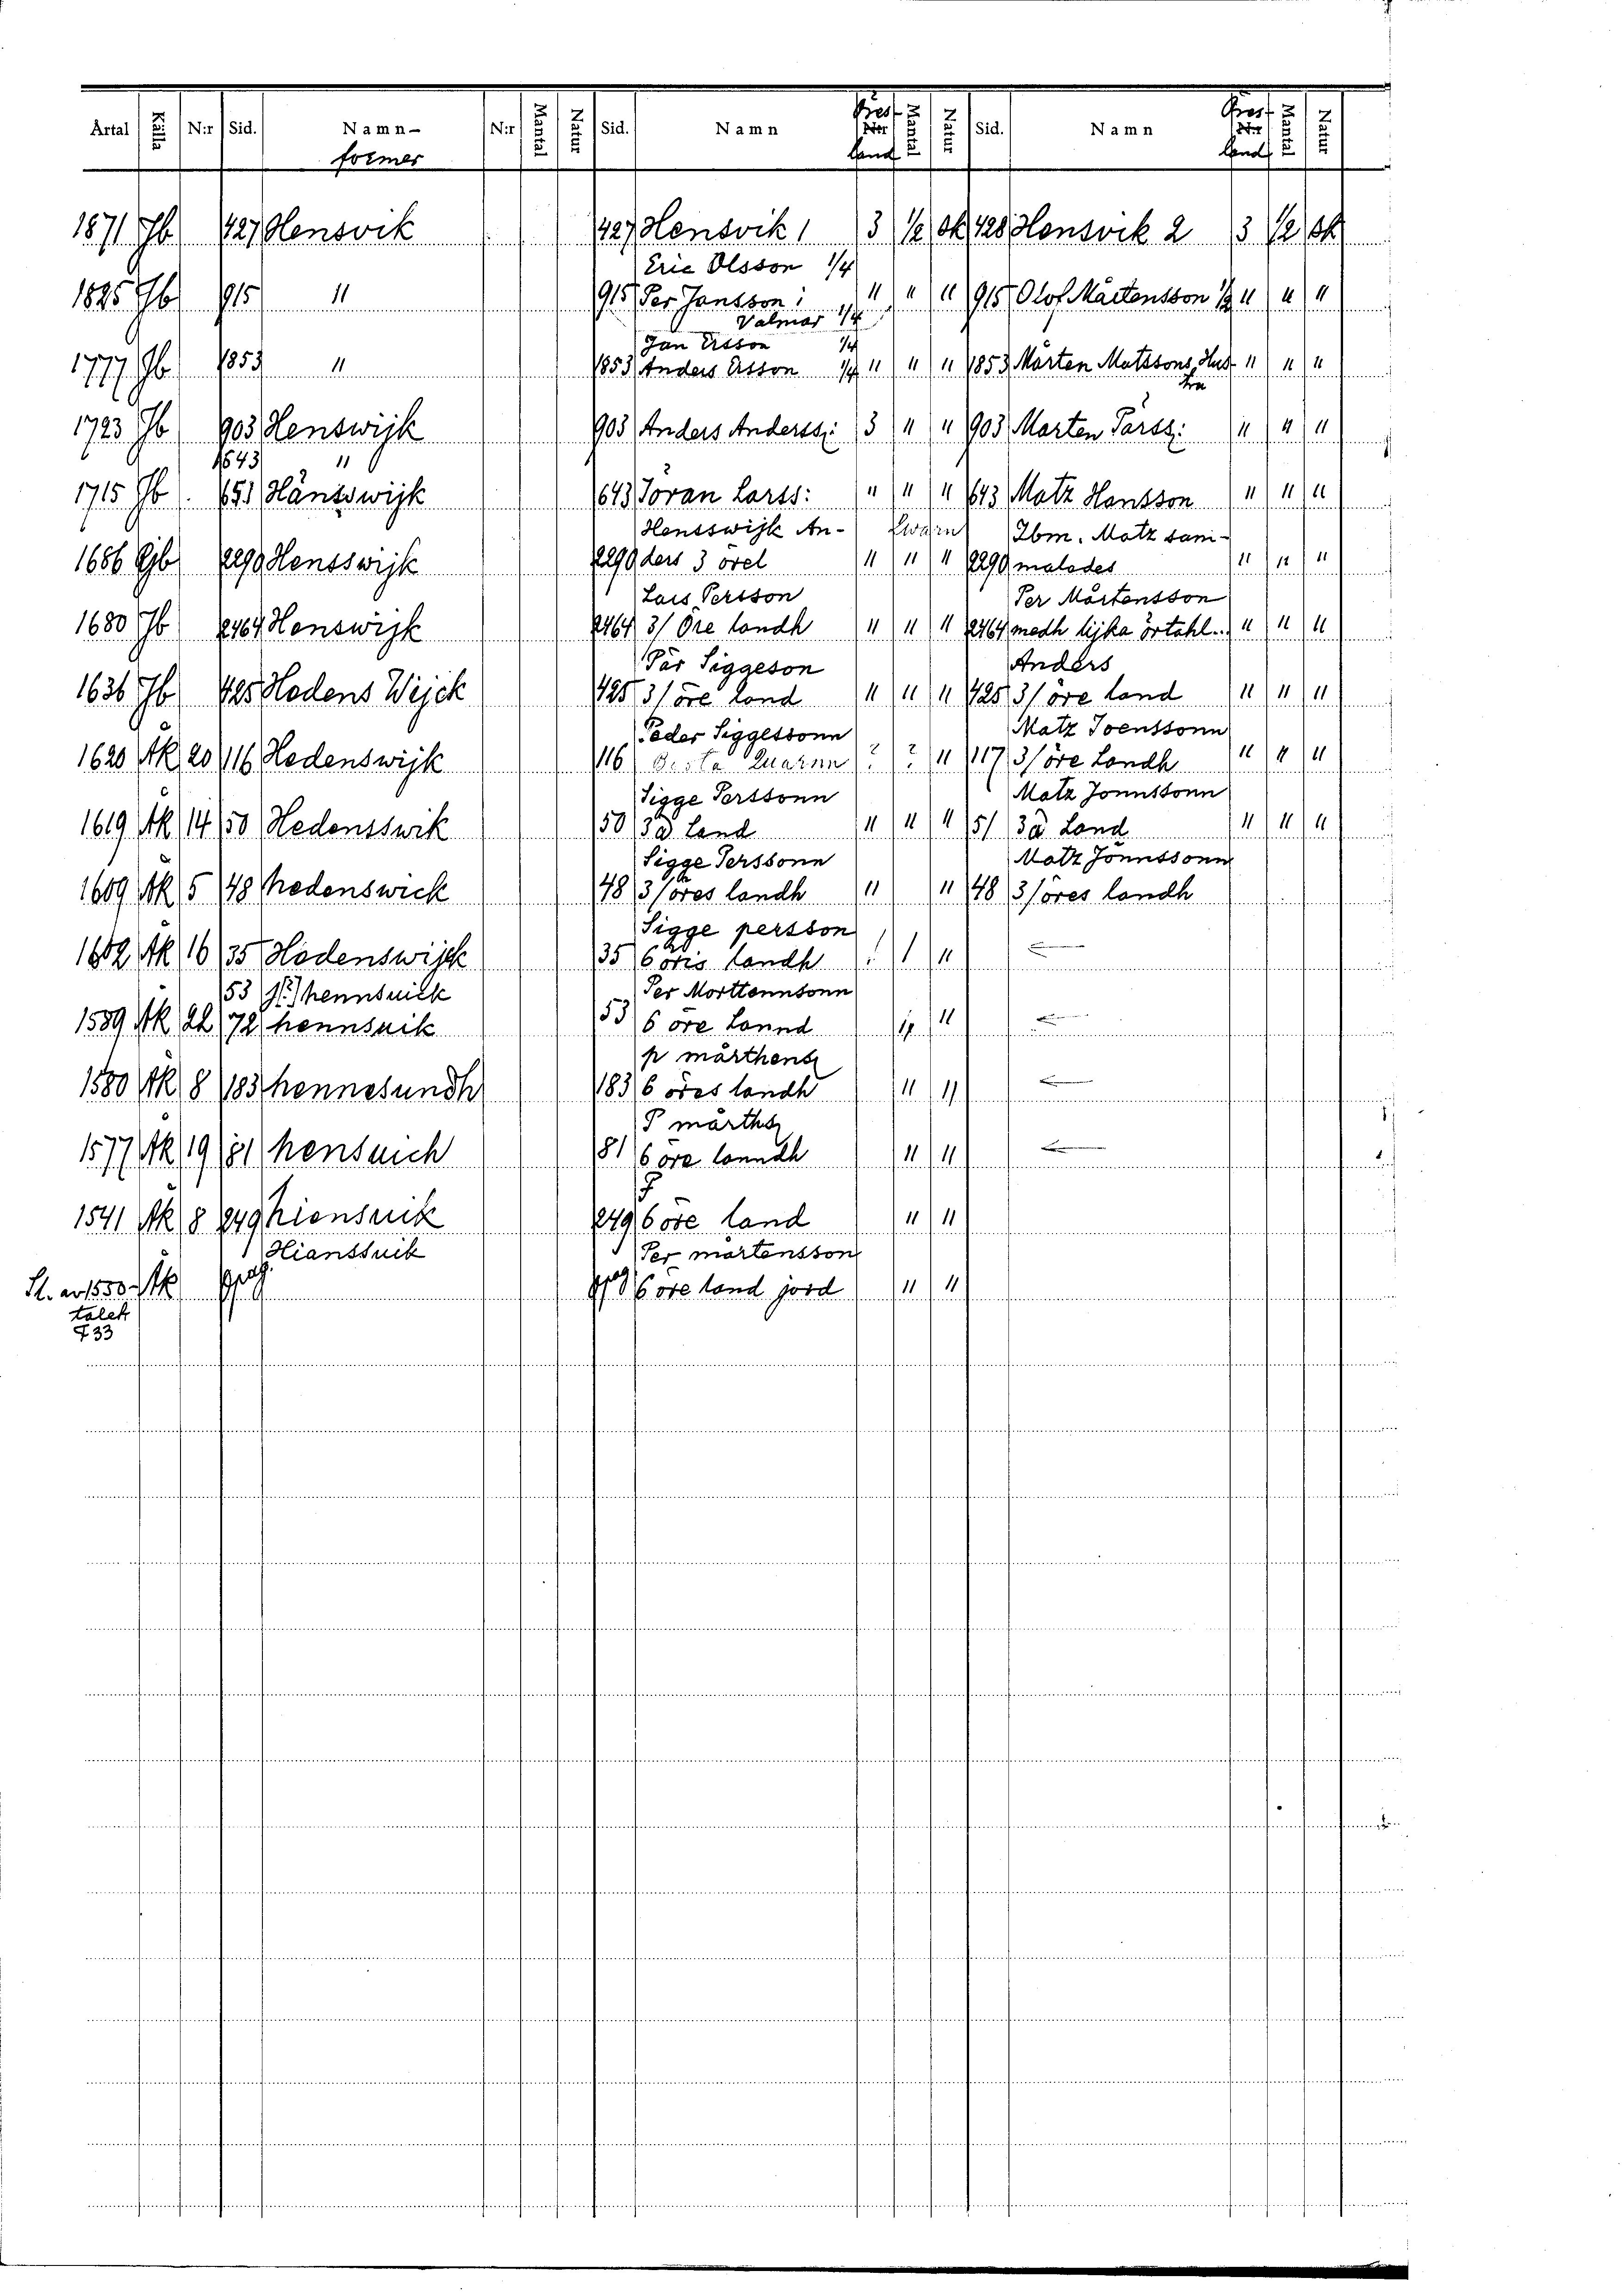 Årtal Källa N:r Sid. Namn- N:r Mantal Natur Sid. Namn N:r Mantal Natur Sid. Namn N:r Mantal Natur
former land land
1871 Jb 427 Hensvik 427 Hensvik 1 3 1/2 sk 428 Hensvik 2 3 1/2 sk
Eric Olsson 1/4
1825 Jb 915 " 915 Per Jansson i " " " 915 Olof Mårtensson 1/2 " " "
Valmar 1/4
Jan Ersson 1/4
1777 Jb 1853 " 1853 Anders Ersson 1/4 " " " 1853 Mårten Matssons Hus- " " "
tru
1723 Jb 903 Henswijk 903 Anders Anderss: 3 " " 903 Mårten Pärss: " " "
1643 "
1715 Jb 651 Hänsswijk 643 Joran Larss: " " " 643 Matz Hansson " " "
Hensswijk An- Ibm. Matz sani-
1686 Jb 2290 Hensswijk 2290 ders 3 örel " " " 2290 maledes " " "
Lars Persson Per Mårtensson
1680 Jb 2464 Henswijk 2464 3/ Öre landh " " " 2464 medh lijka örtahl.. " " "
Pär Siggeson Anders
1636 Jb 425 Hedens Wijck 425 3/ öre land " " " 425 3/ öre land " " "
Peder Siggessonn Matz Joenssonn
1620 Åk 20 116 Hedenswijk 116 Quarnn ? ? " 117 3/ öre Landh " " "
Sigge Perssonn Matz Jonnssonn
1619 Åk 14 50 Hedensswik 50 3ö Land " " " 51 3ö Land " " "
Sigge Perssonn Matz Jönnssonn
1609 Åk 5 48 hedenswick 48 3/ öres landh " " 48 3/ öres landh
Sigge persson
1602 Åk 16 35 Hädenswijck 35 6 öris landh 1 "
53 hennsuick Per Morttennsonn
1589 Åk 22 72 hennsuik 53 6 öre Lannd "
p mårthens
1580 Åk 8 183 hennesundh 183 6 öres landh " "
P mårths
1577 Åk 19 81 hensuich 81 6 öre lanndh " "
1541 Åk 8 249 hiensuik 249 6 öre land " "
Hianssuik Per mårtensson
Sl. av 1530- Åk opag. opag 6 öre land jord " "
talet
F 33